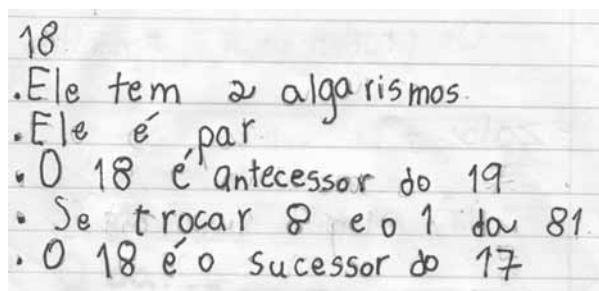 18
.Ele tem 2 algarismos.
.Ele é par.
.O 18 é antecessor do 19
. Se trocar 8 e o 1 da 81.
. O 18 é o sucessor do 17